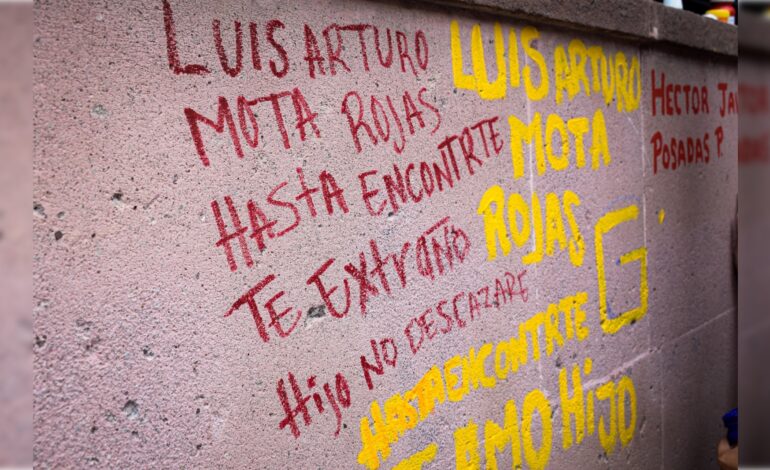 LUIS ARTURO
MOTA ROJAS
HASTA ENCONTRTE
TE EXTRAÑO
HIJO NO DESCAZARE
LUIS ARTURO
MOTA
ROJAS
G
HASTA ENCONTRTE
AMO HIJO
HECTOR
POSADAS P.